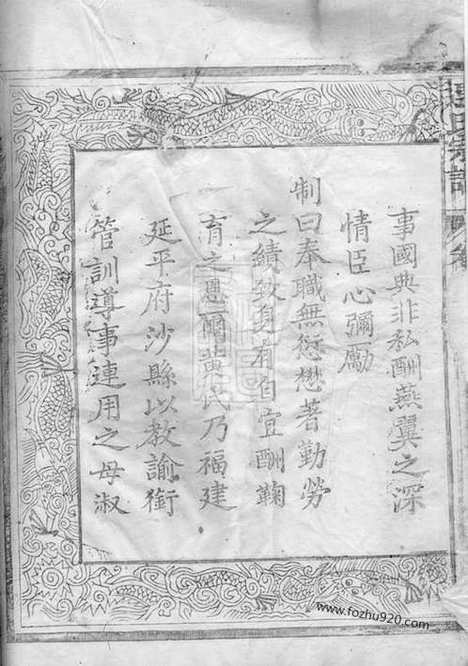 事國典非私酬燕翼之深
情臣心彌勵
制曰奉職無愆懋著勤勞
之績致身有自宜酬鞠
育之恩爾黃氏乃福建
延平府沙縣以教諭銜
管訓導事連用之母淑
氏宗譜
www.fozhu920.com